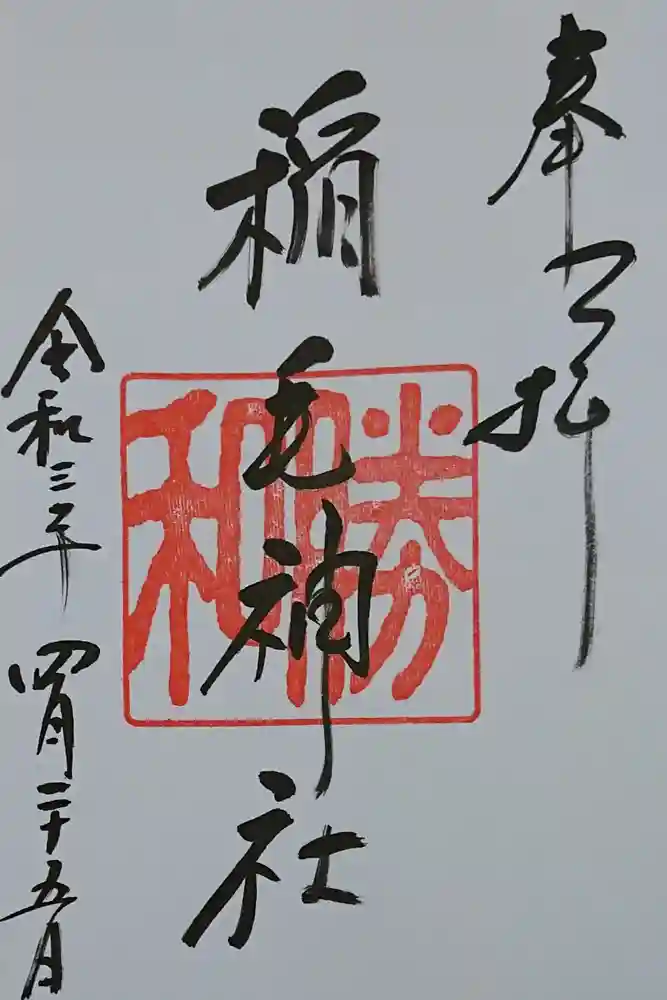 奉拝
稲毛神社
勝和
令和三年 四月二十五日